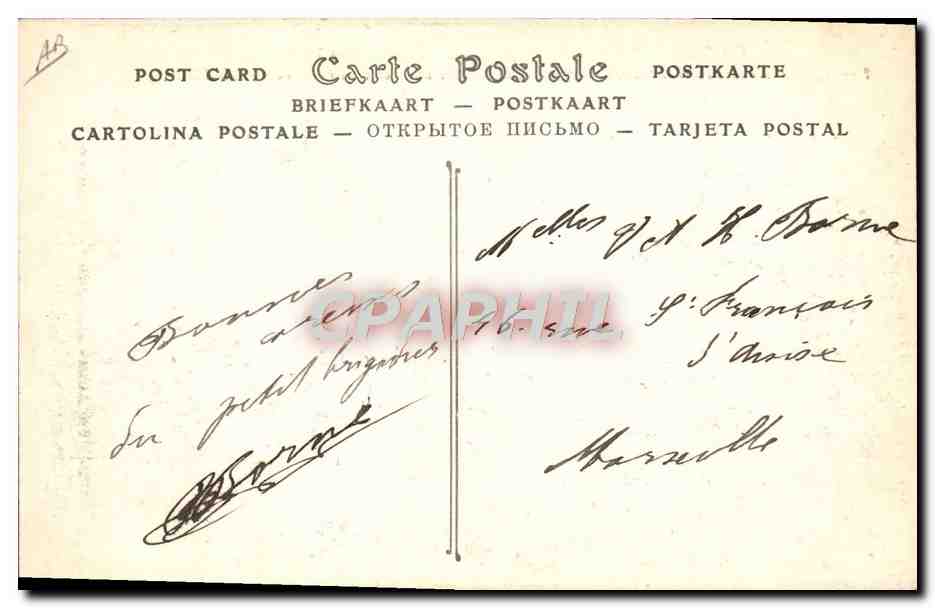 AB
POST CARD Carte Postale POSTKARTE
BRIEFKAART — POSTKAART
CARTOLINA POSTALE — ОТКРЫТОЕ ПИСЬМО — TARJETA POSTAL
Bonnes
du petit
Borne
CPAPHIL
Melles V A H. Borne
16 rue St François
d'assise
Marseille